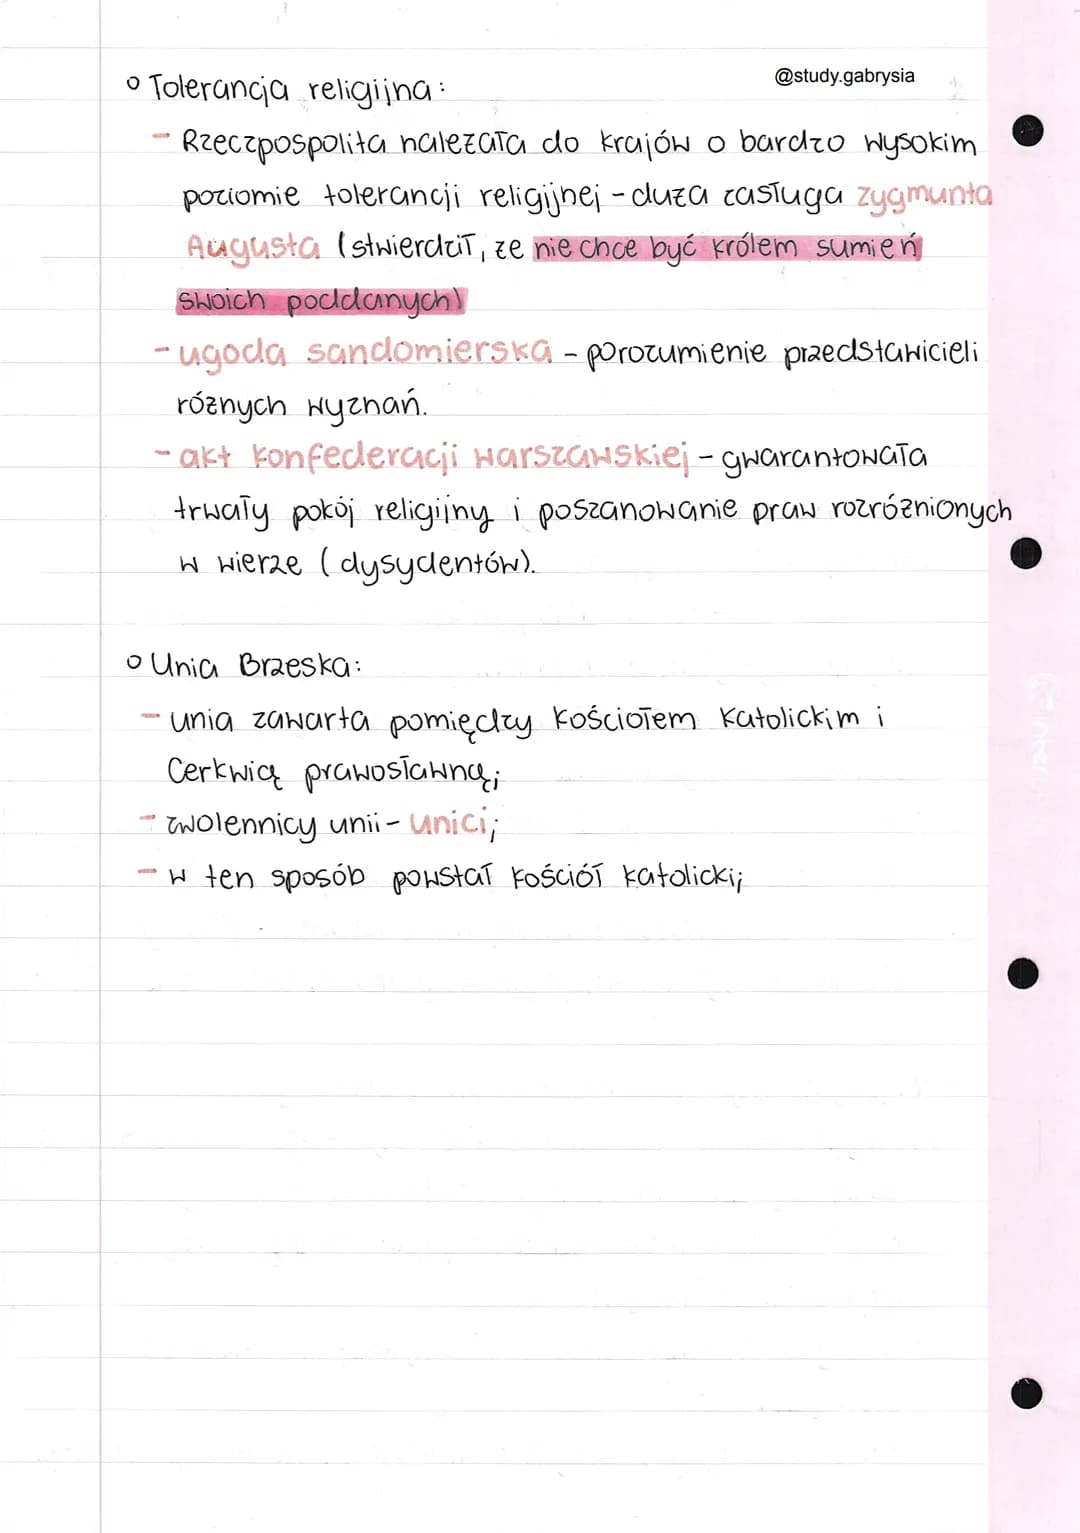 @study.gabrysia
o Tolerancja religijna:
- Rzeczpospolita należała do krajów o bardzo wysokim
poziomie tolerancji religijnej - duża zasługa Zygmunta
Augusta (stwierdził, że nie chce być królem sumień
swoich poddanych)
- ugoda sandomierska - porozumienie przedstawicieli
różnych wyznań.
- akt konfederacji warszawskiej - gwarantowała
trwały pokój religijny i poszanowanie praw rozróżnionych
w wierze (dysydentów).
o Unia Brzeska:
- unia zawarta pomiędzy Kościołem Katolickim i
Cerkwią prawosławną;
- zwolennicy unii - unici;
- w ten sposób powstał kościół katolicki;